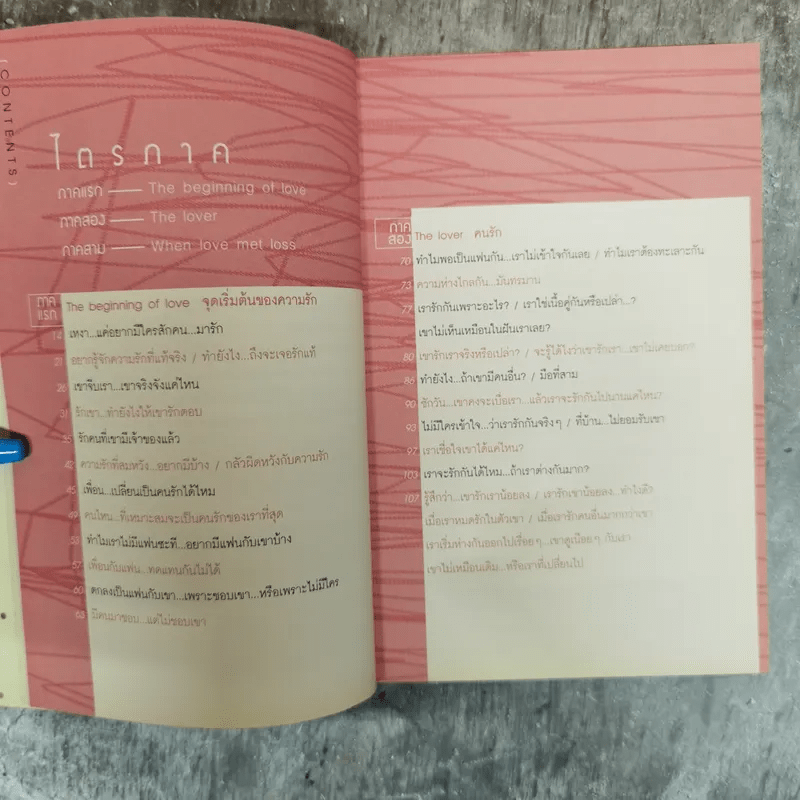 (CONTENTS)
ไตรภาค
ภาคแรก — The beginning of love
ภาคสอง — The lover
ภาคสาม — When love met loss
ภาคแรก The beginning of love จุดเริ่มต้นของความรัก
เหงา...แค่อยากมีใครสักคน...มารัก
21 อยากรู้จักความรักที่แท้จริง / ทำยังไง...ถึงจะเจอรักแท้
26 เขาจีบเรา...เขาจริงจังแค่ไหน
31 รักเขา...ทำยังไงให้เขารักตอบ
35 รักคนที่เขามีเจ้าของแล้ว
42 ความรักที่สมหวัง...อยากมีบ้าง / กลัวผิดหวังกับความรัก
45 เพื่อน...เปลี่ยนเป็นคนรักได้ไหม
49 คนไหน...ที่เหมาะสมจะเป็นคนรักของเราที่สุด
53 ทำไมเราไม่มีแฟนซะที...อยากมีแฟนกับเขาบ้าง
57 เพื่อนกับแฟน...ทดแทนกันไม่ได้
60 ตกลงเป็นแฟนกับเขา...เพราะชอบเขา...หรือเพราะไม่มีใคร
63 มีคนมาชอบ...แต่ไม่ชอบเขา
ภาคสอง The lover คนรัก
70 ทำไมพอเป็นแฟนกัน...เราไม่เข้าใจกันเลย / ทำไมเราต้องทะเลาะกัน
73 ความห่างไกลกัน...มันทรมาน
77 เรารักกันเพราะอะไร? / เราใช่เนื้อคู่กันหรือเปล่า...?
เขาไม่เห็นเหมือนในฝันเราเลย?
80 เขารักเราจริงหรือเปล่า? / จะรู้ได้ไงว่าเขารักเรา...เขาไม่เคยบอก?
86 ทำยังไง...ถ้าเขามีคนอื่น? / มือที่สาม
90 ซักวัน...เขาคงจะเบื่อเรา...แล้วเราจะรักกันไปนานแค่ไหน?
93 ไม่มีใครเข้าใจ...ว่าเรารักกันจริงๆ / ที่บ้าน...ไม่ยอมรับเขา
97 เราเชื่อใจเขาได้แค่ไหน?
103 เราจะรักกันได้ไหม...ถ้าเราต่างกันมาก?
107 รู้สึกว่า...เขารักเราน้อยลง / เรารักเขาน้อยลง...ทำไงดี?
เมื่อเราหมดรักในตัวเขา / เมื่อเรารักคนอื่นมากกว่าเขา
เราเริ่มห่างกันออกไปเรื่อยๆ...เขาดูเนือยๆ กับเรา
เขาไม่เหมือนเดิม...หรือเราที่เปลี่ยนไป